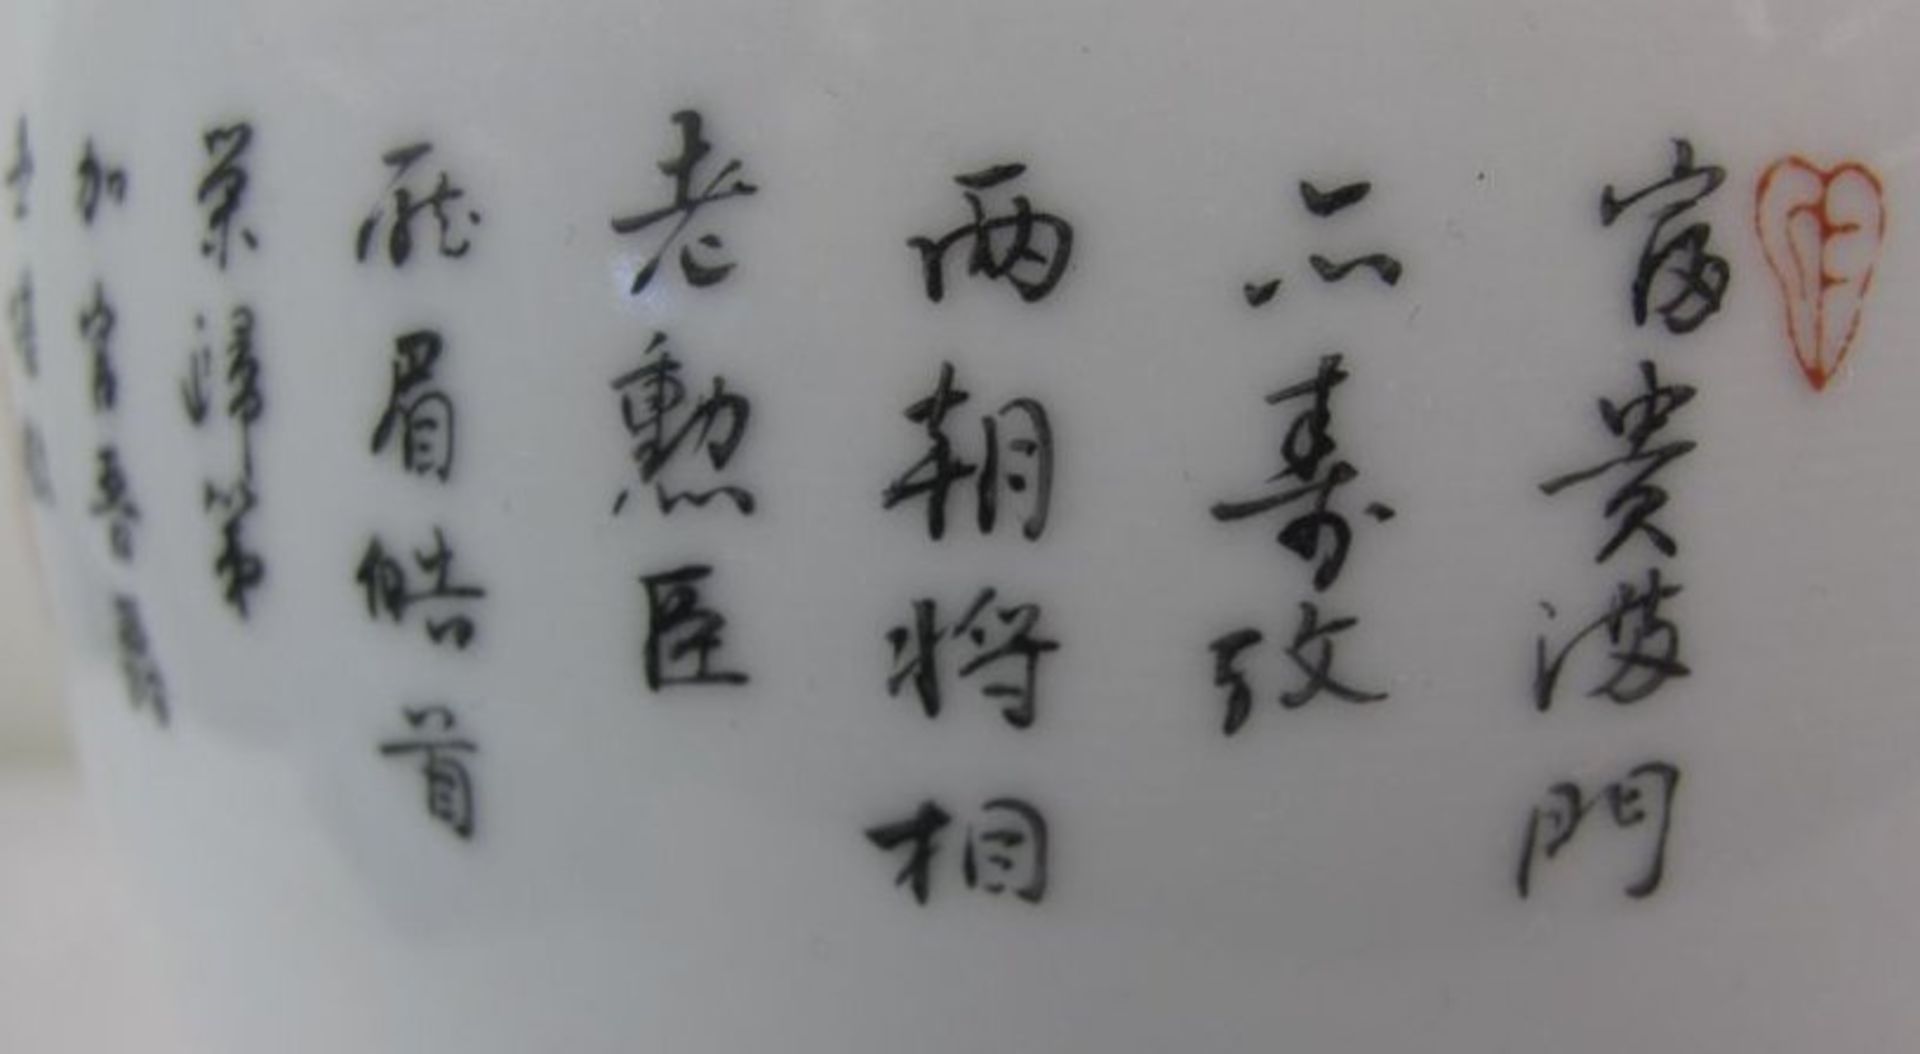 富貴滿門
壽攷
兩朝將相
老勳臣
龐眉皓首
榮歸第
加官晋爵